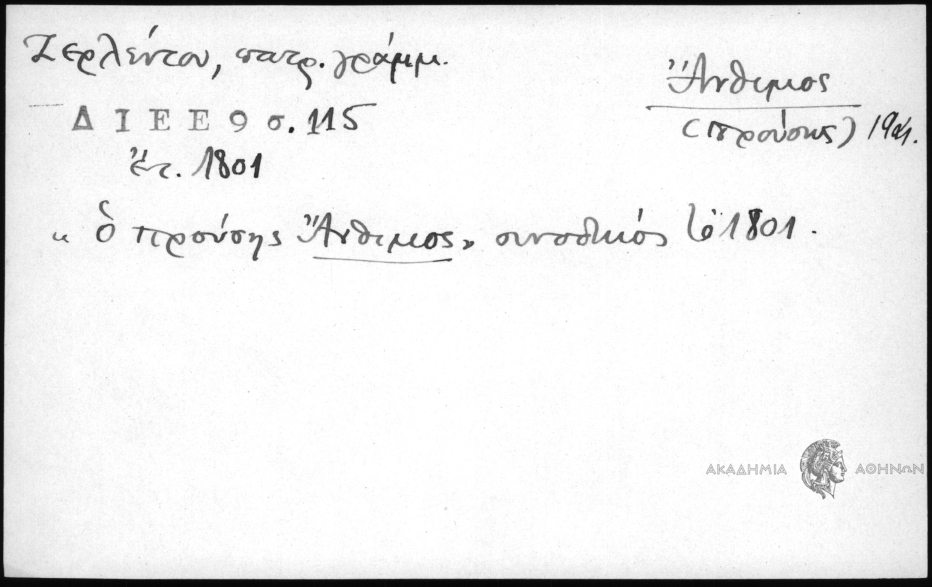 Ζερλέντου, πατρ. γράμμ.
Ἄνθιμος
(Προύσης)
ΔΙΕΕ 9 σ. 115
ἔτ. 1801
« ὁ Προύσης Ἄνθιμος» συνοδικός 1801.
ΑΚΑΔΗΜΙΑ ΑΘΗΝΩΝ